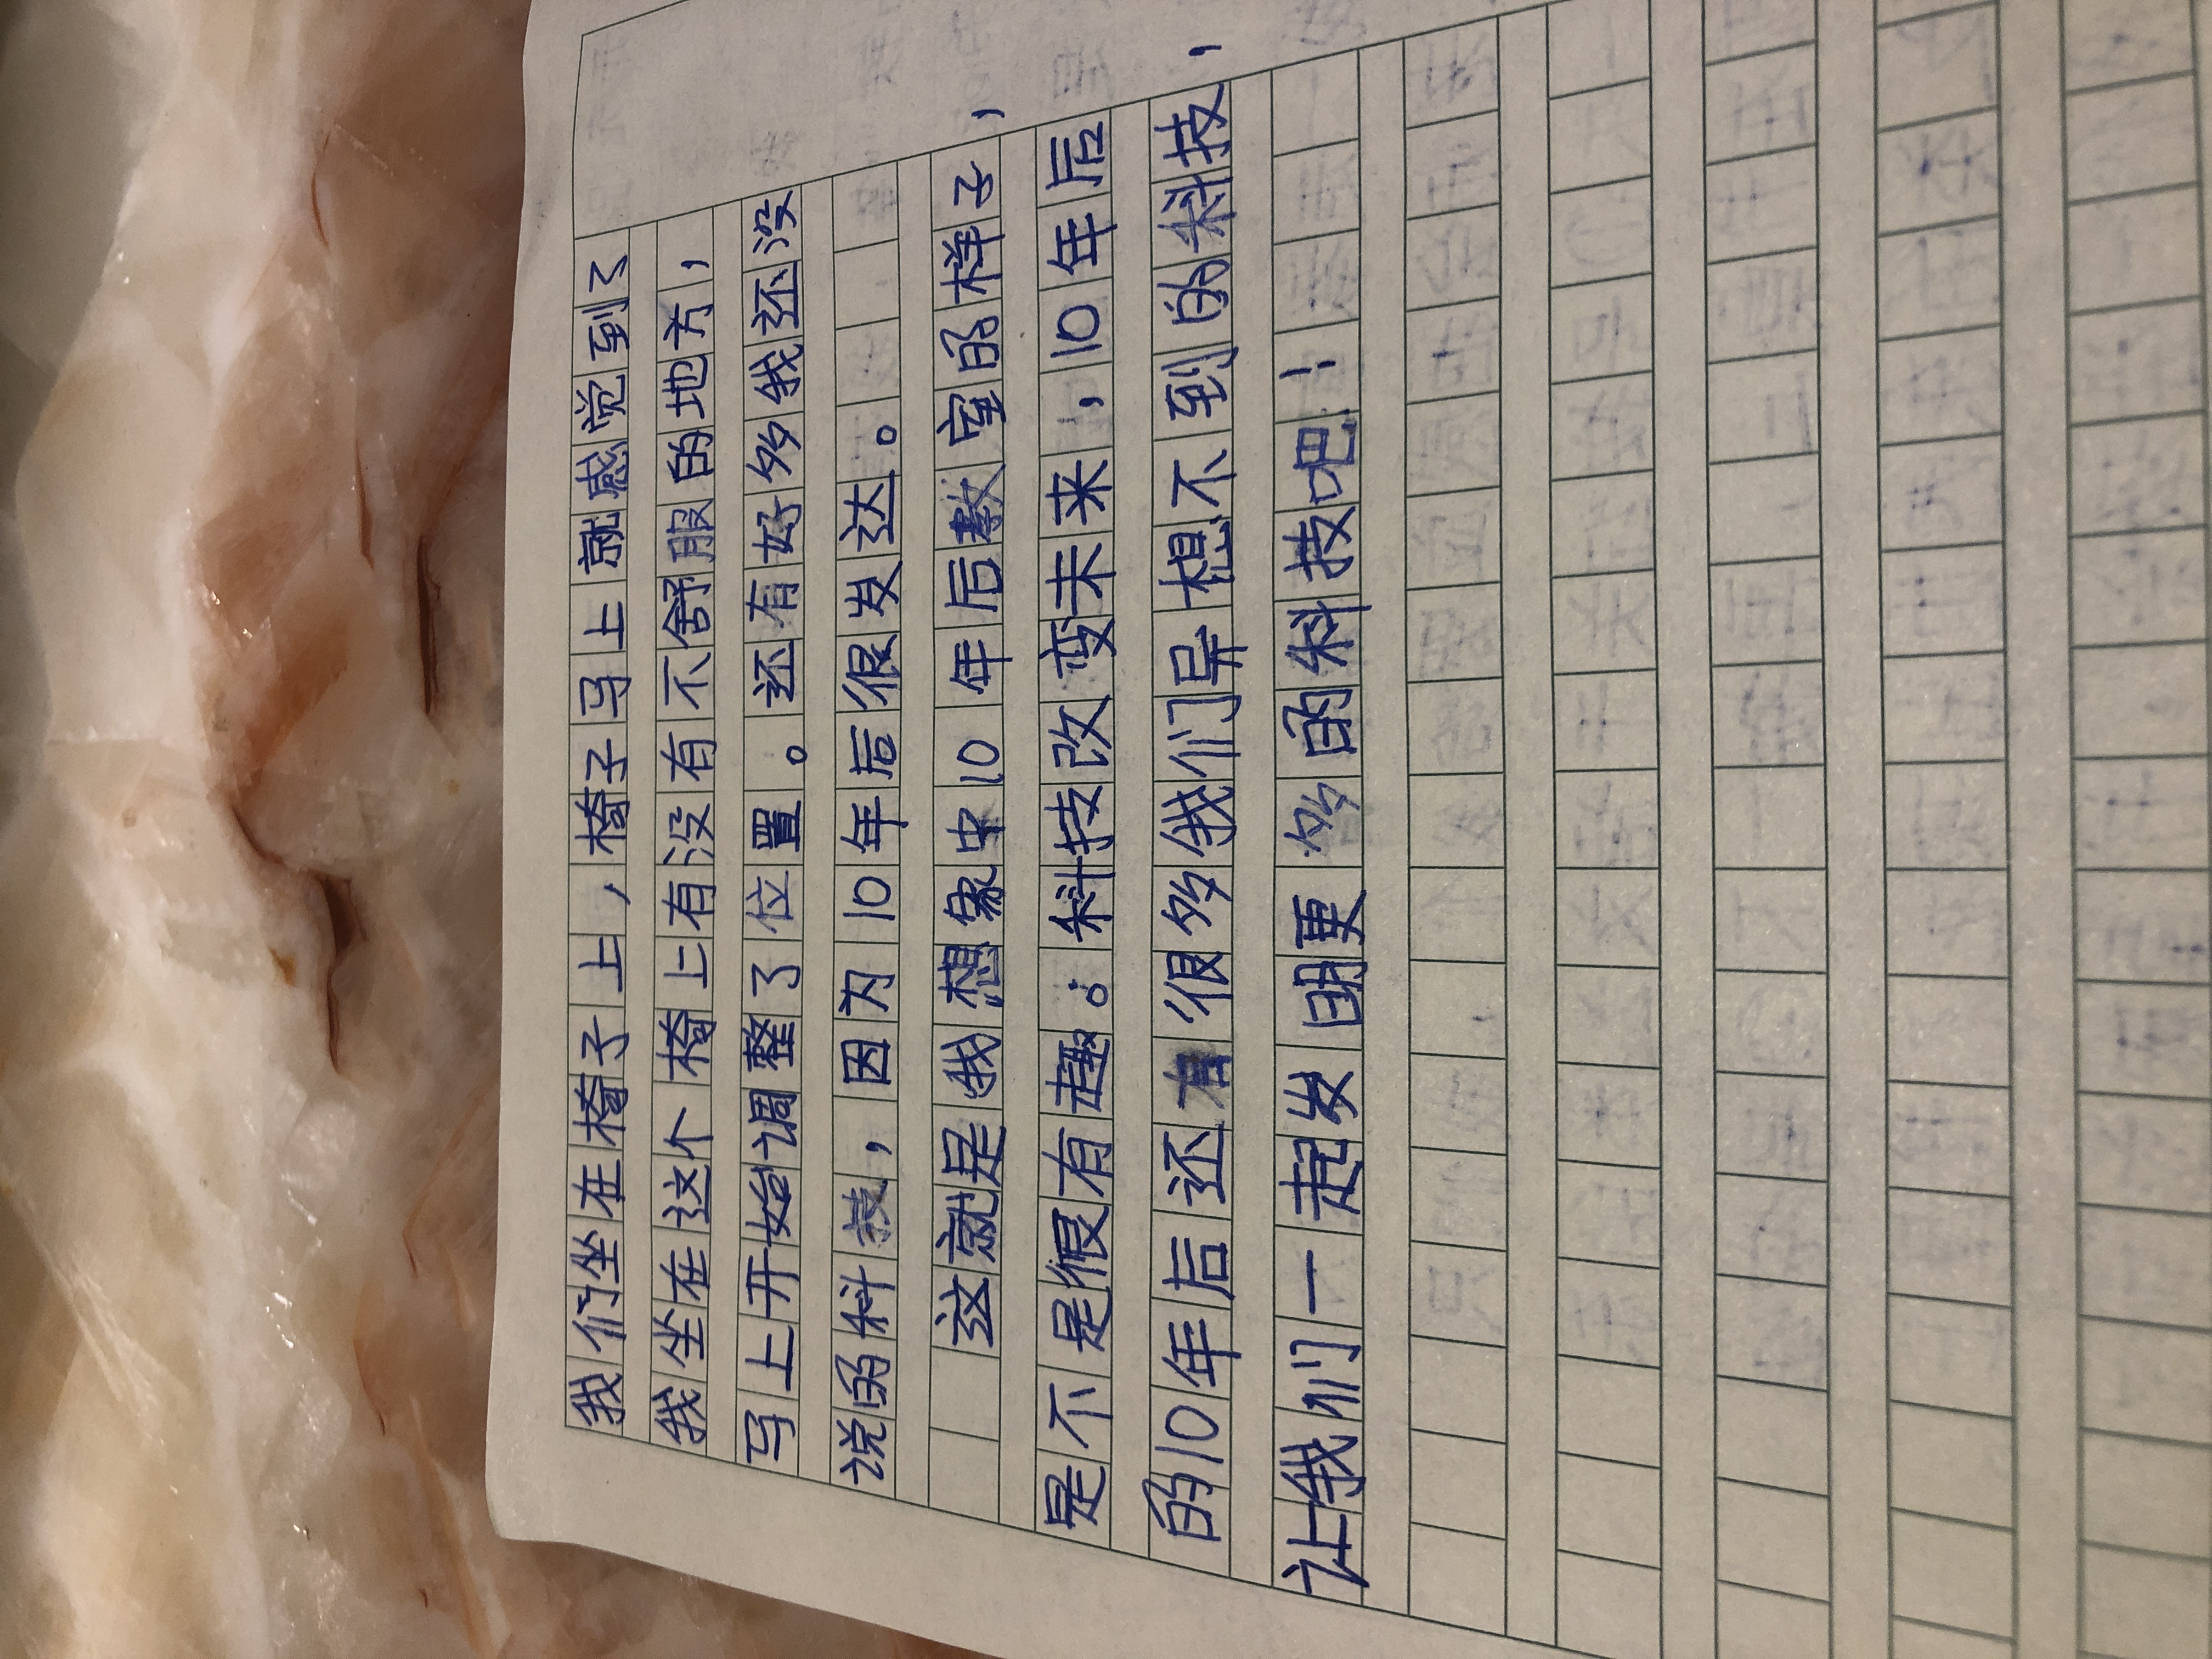 我们坐在椅子上，椅子马上就感觉到了
我坐在这个椅上有没有不舒服的地方，
马上开始调整了位置。还有好多我还没
说的科技，因为10年后很发达。
这就是我想象中10年后教室的样子，
是不是很有趣。科技改变未来，10年后
的10年后还有很多我们异想不到的科技，
让我们一起发明更多的科技吧！